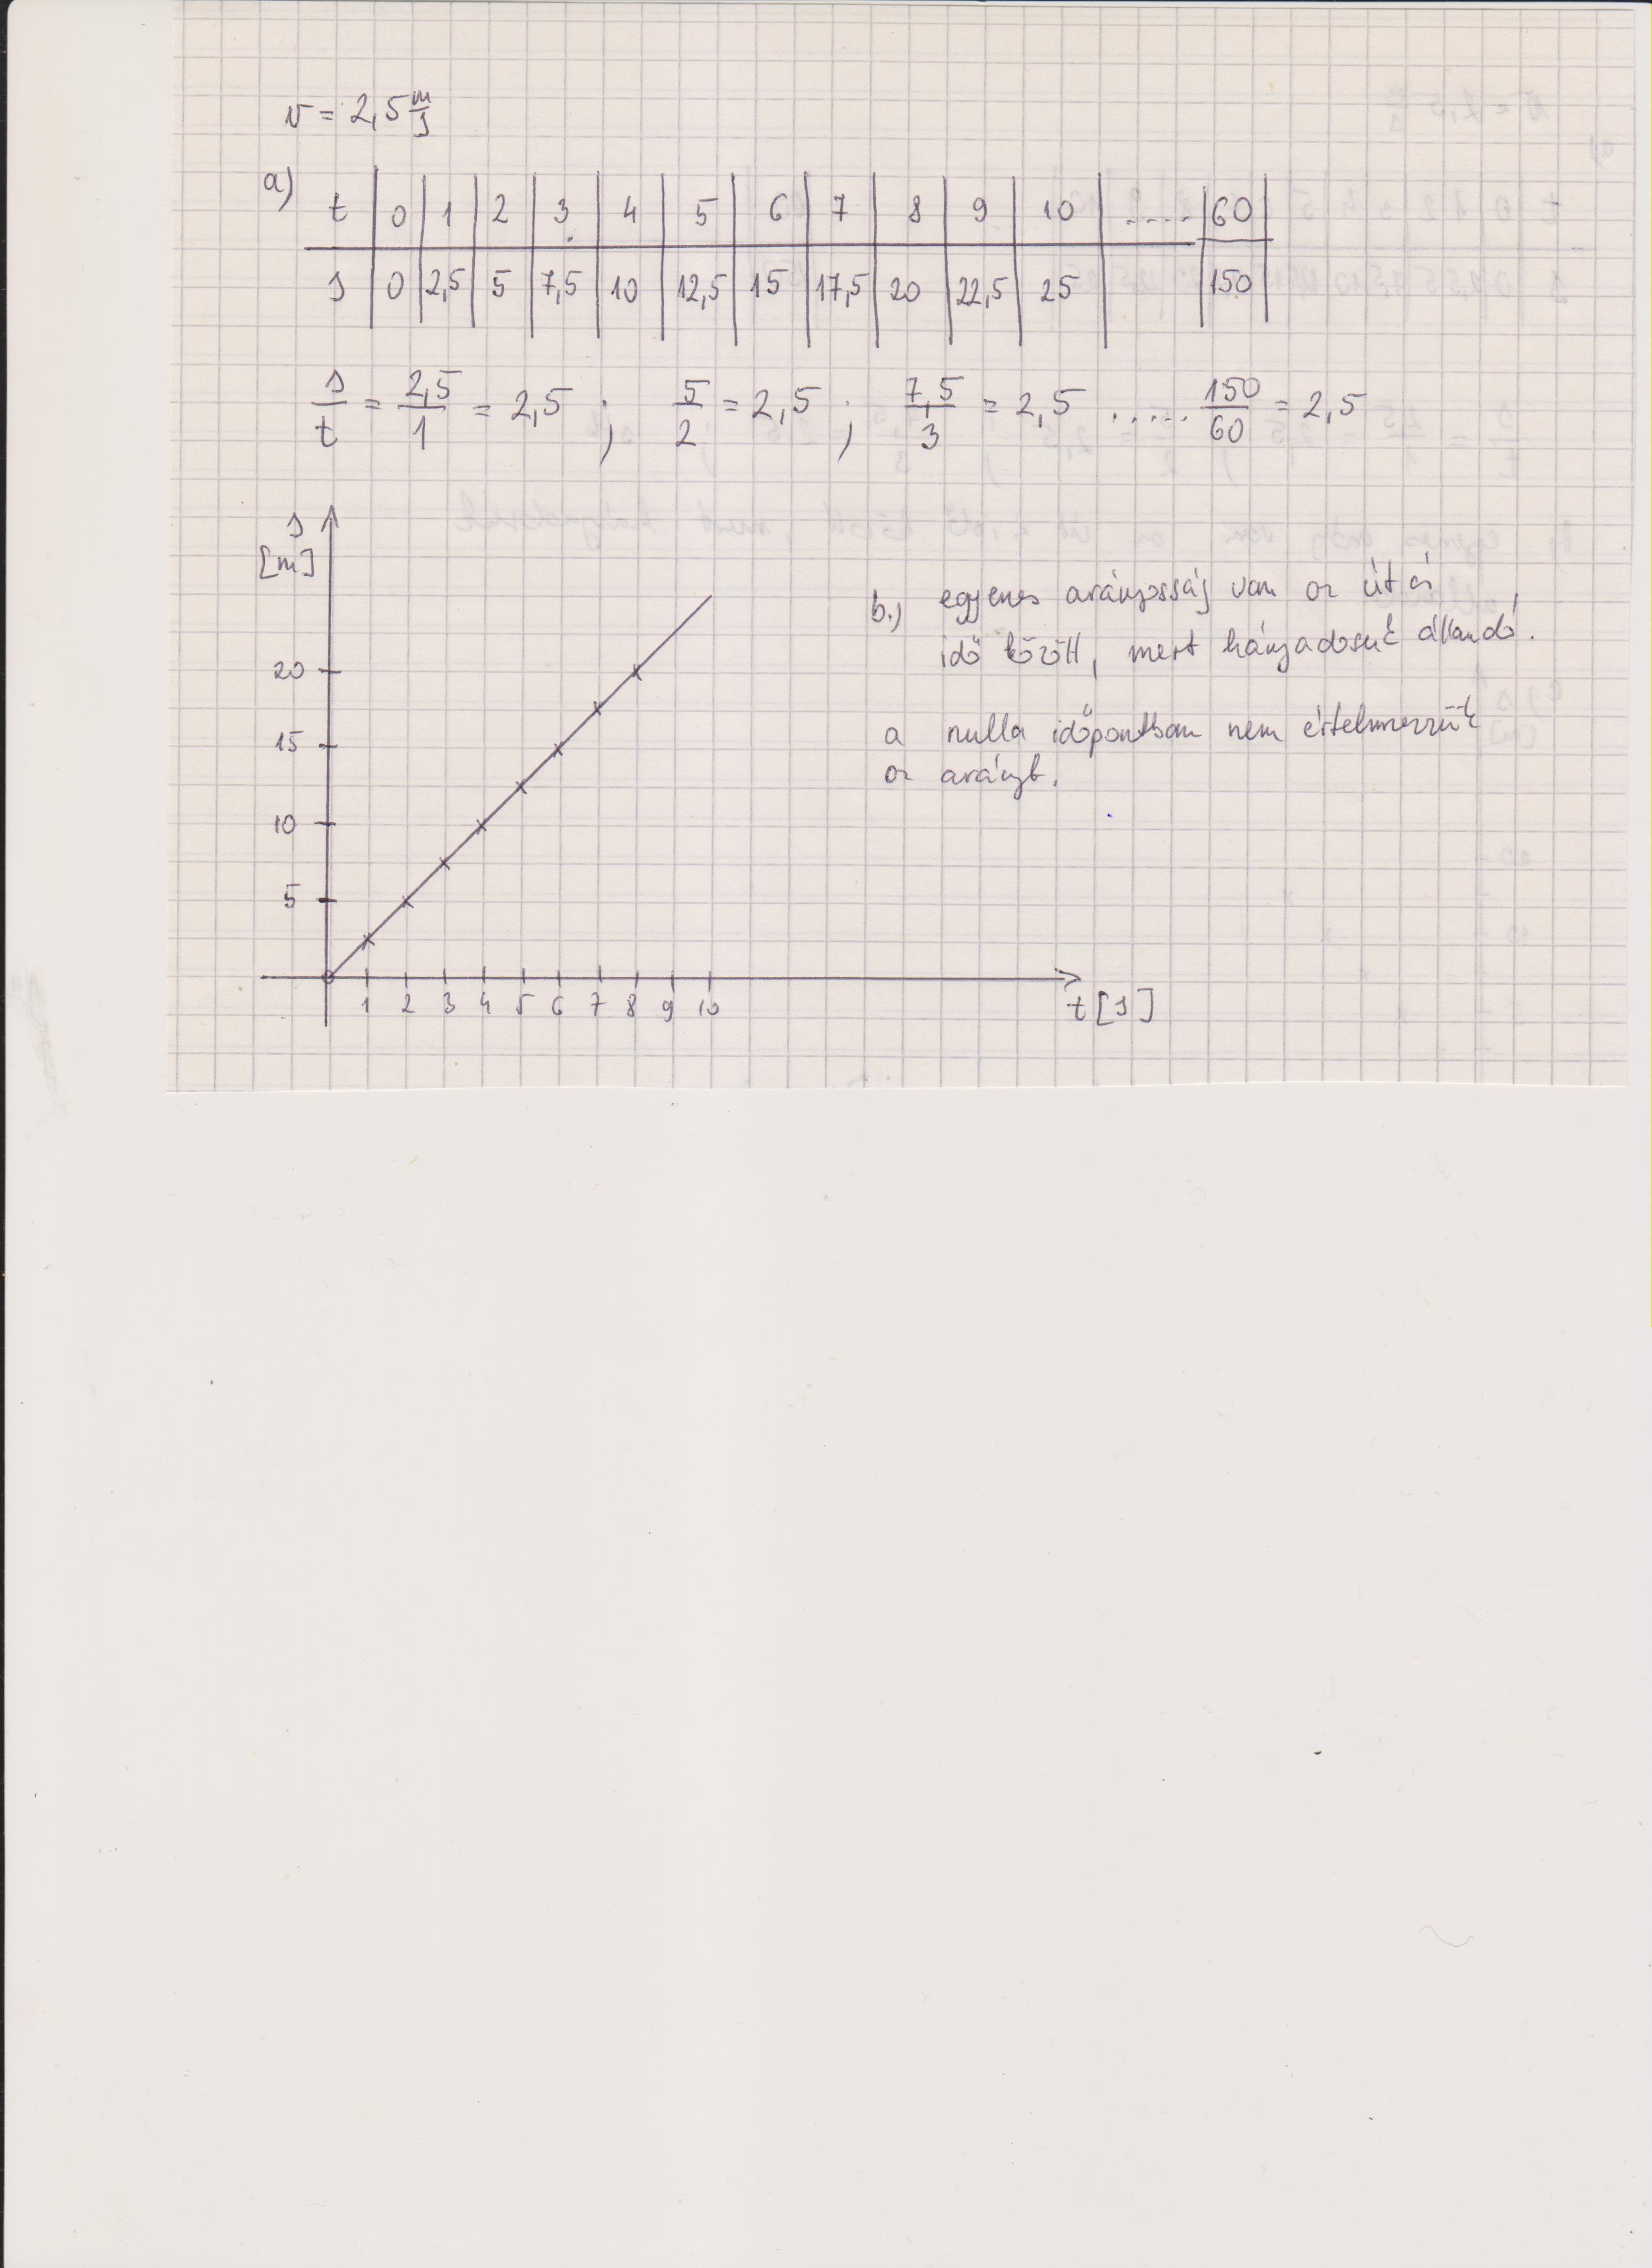 v = 2,5 m/s
a)
t | 0 | 1 | 2 | 3 | 4 | 5 | 6 | 7 | 8 | 9 | 10 | ..... | 60 |
s | 0 | 2,5 | 5 | 7,5 | 10 | 12,5 | 15 | 17,5 | 20 | 22,5 | 25 | | 150 |
s/t = 2,5/1 = 2,5 ; 5/2 = 2,5 ; 7,5/3 = 2,5 ..... 150/60 = 2,5
s
[m]
20
15
10
5
1 2 3 4 5 6 7 8 9 10
t [s]
b.) egyenes arányosság van az út és
idő között, mert hányadosuk állandó.
a nulla időpontban nem értelmezzük
az arányt.